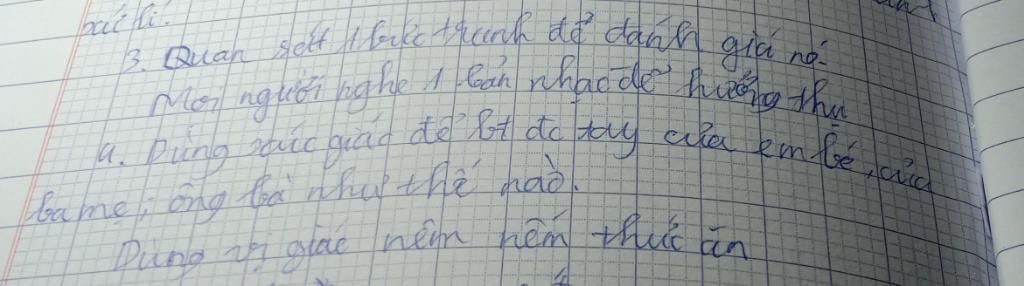 xác lí.
3. Quan sát 1 bức tranh để đánh giá nó.
Mọi người nghe 1 bản nhạc để hưởng thụ
4. Dùng xúc giác để bt đc tay của em bé, của
ba mẹ, ông bà như thế nào.
Dùng vị giác nêm nếm thức ăn